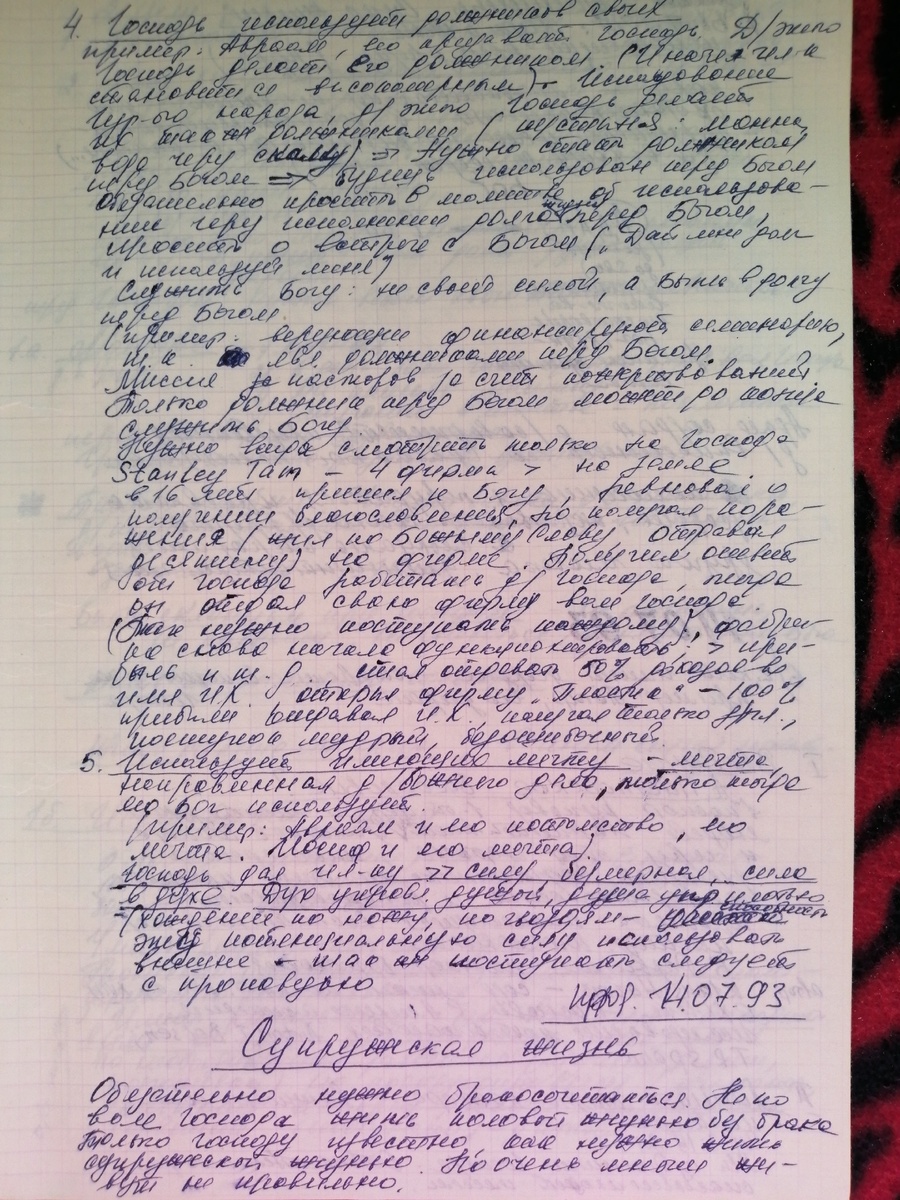 4. Господь использует должников своих
пример: Авраам, его Господь. Д/этого
Господь делает его должником (Иначе чел-к
становится высокомерным) - Использование
народа, д/этого Господь делает
их также должниками (пустыня: манна,
вода через скалу) => Нужно стать должником
перед Богом => Будешь использован перед Богом
Обязательно просить в молитве об использова-
нии через исполнении долга перед Богом,
просить о встрече с Богом ("Дай мне долг
и используй меня")
Служить Богу: не своей силой, а быть в долгу
перед Богом.
(пример: верующие финансируют семинарию,
т.к. явл. должниками перед Богом.
Миссия за пасторов за счет пожертвований
Только должник перед Богом может до конца
служить Богу.
Нужно всегда смотреть только на Господа
Stanley Tam - 4 фирма > на земле
в 16 лет пришел к Богу, ревновал о
получении благословения, но получал пора-
жения (жил по Божьему Слову отдавал
десятину) на фирме. Получил ответ
от Господа работать д/Господа, тогда
он отдал свою фирму Господа
(Так нужно поступать каждому), фабри-
ка снова начала функционировать: > при-
быль и т.д. стал отдавать 50% доходов во
имя И.Х. открыл фирму "Пласти" - 100%
прибыли отдавал И.Х., получал только
поступок мудрый, безошибочный.
5. Использует имеющих мечту - мечта,
направленная д/Божьего дела, только тогда
его Бог использует.
(пример: Авраам и его потомство, его
мечта. Иосиф и его мечта)
Господь дал чел-ку > силу безмерная, сила
в духе. Дух управл. душой, душа упр плотью
(хождение по ножу, по гвоздям-
эту потенциальную силу использовать
внешне - так поступать следует
с проповедью
14.07.93
Супружская жизнь
Обязательно нужно бракосочетаться. Не по
воле Господа жить половой жизнью без брака
только Господу известно, как нужно жить
супружеской жизнью. Но очень многие жи-
вут не правильно.